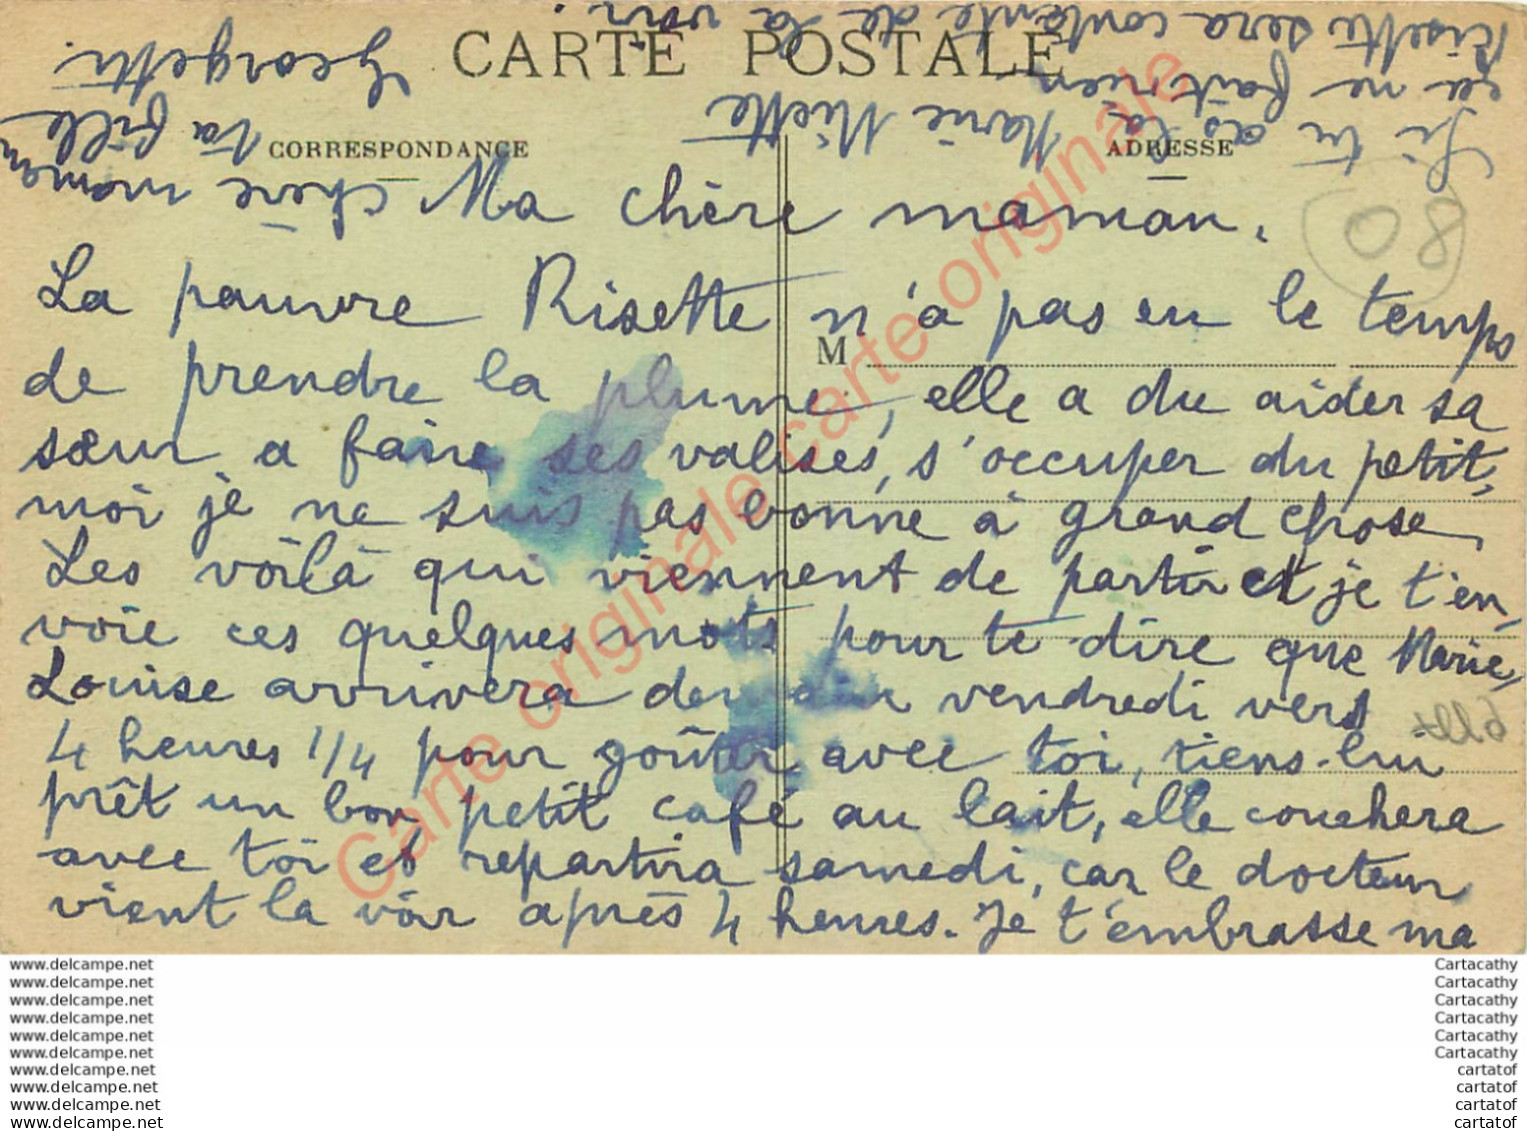 CARTE POSTALE
CORRESPONDANCE
ADRESSE
M
Ma chère maman.
La pauvre Risette n'a pas eu le temps
de prendre la plume, elle a du aider sa
sœur a faire ses valises, s'occuper du petit,
moi je ne suis pas bonne à grand chose,
Les voilà qui viennent de partir et je t'en,
voie ces quelques mots pour te dire que Marie,
Louise arrivera vendredi vers
4 heures 1/4 pour goûter avec toi, tiens-lui
prêt un bon petit café au lait, elle couchera
avec toi et repartira samedi, car le docteur
vient la voir après 4 heures. Je t'embrasse ma
chère maman
Ta fille
Georgette.
Si tu as la Marie Miette
ça ne fait rien
Risette sera contente de la voir.
80
Carte originale Carte originale Carte originale
www.delcampe.net
www.delcampe.net
www.delcampe.net
www.delcampe.net
www.delcampe.net
www.delcampe.net
www.delcampe.net
www.delcampe.net
www.delcampe.net
www.delcampe.net
Cartacathy
Cartacathy
Cartacathy
Cartacathy
Cartacathy
Cartacathy
cartatof
cartatof
cartatof
cartatof